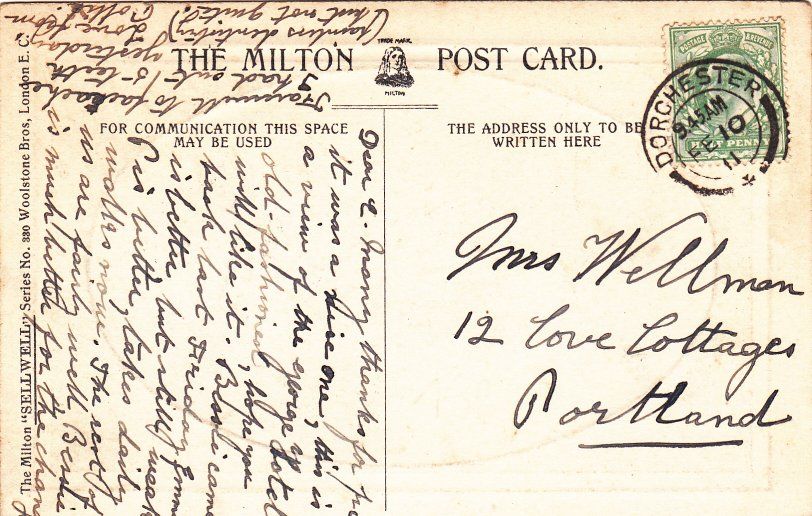 THE MILTON
TRADE MARK
MILTON
POST CARD.
FOR COMMUNICATION THIS SPACE
MAY BE USED
THE ADDRESS ONLY TO BE
WRITTEN HERE
The Milton "SELLWELL" Series No. 330 Woolstone Bros, London E. C.
POSTAGE & REVENUE
HALF PENN
DORCHESTER
9.45AM
FE 10
11
Mrs Wellman
12 Love Cottages
Portland
Dear E. Many thanks for
it was a nice one, this is
a view of the George Hotel
old-fashioned, hope you
will like it. Bessie came
back last Friday,
is better but still weak
P is bitter, takes daily
walks now. The rest of
us are fairly well Bessie
is much better for the chan
Farewell to
I had out 15 teeth
yesterday
Love from
(painless dentistry)
(but not quite!)